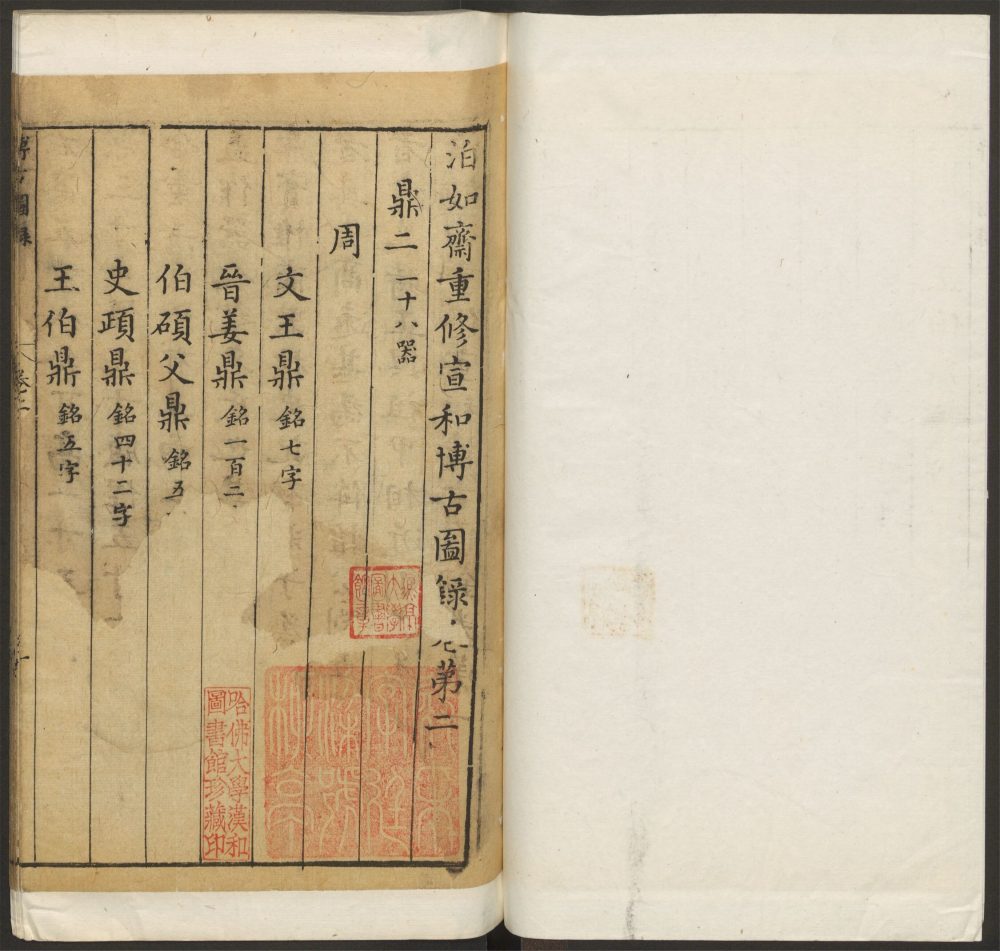 泊如齋重修宣和博古圖錄卷第二
鼎二 一十八器
周
文王鼎 銘七字
晉姜鼎 銘一百二
伯碩父鼎 銘五
史頙鼎 銘四十二字
王伯鼎 銘五字
博古圖錄 卷二
哈佛大學漢和
圖書館珍藏印